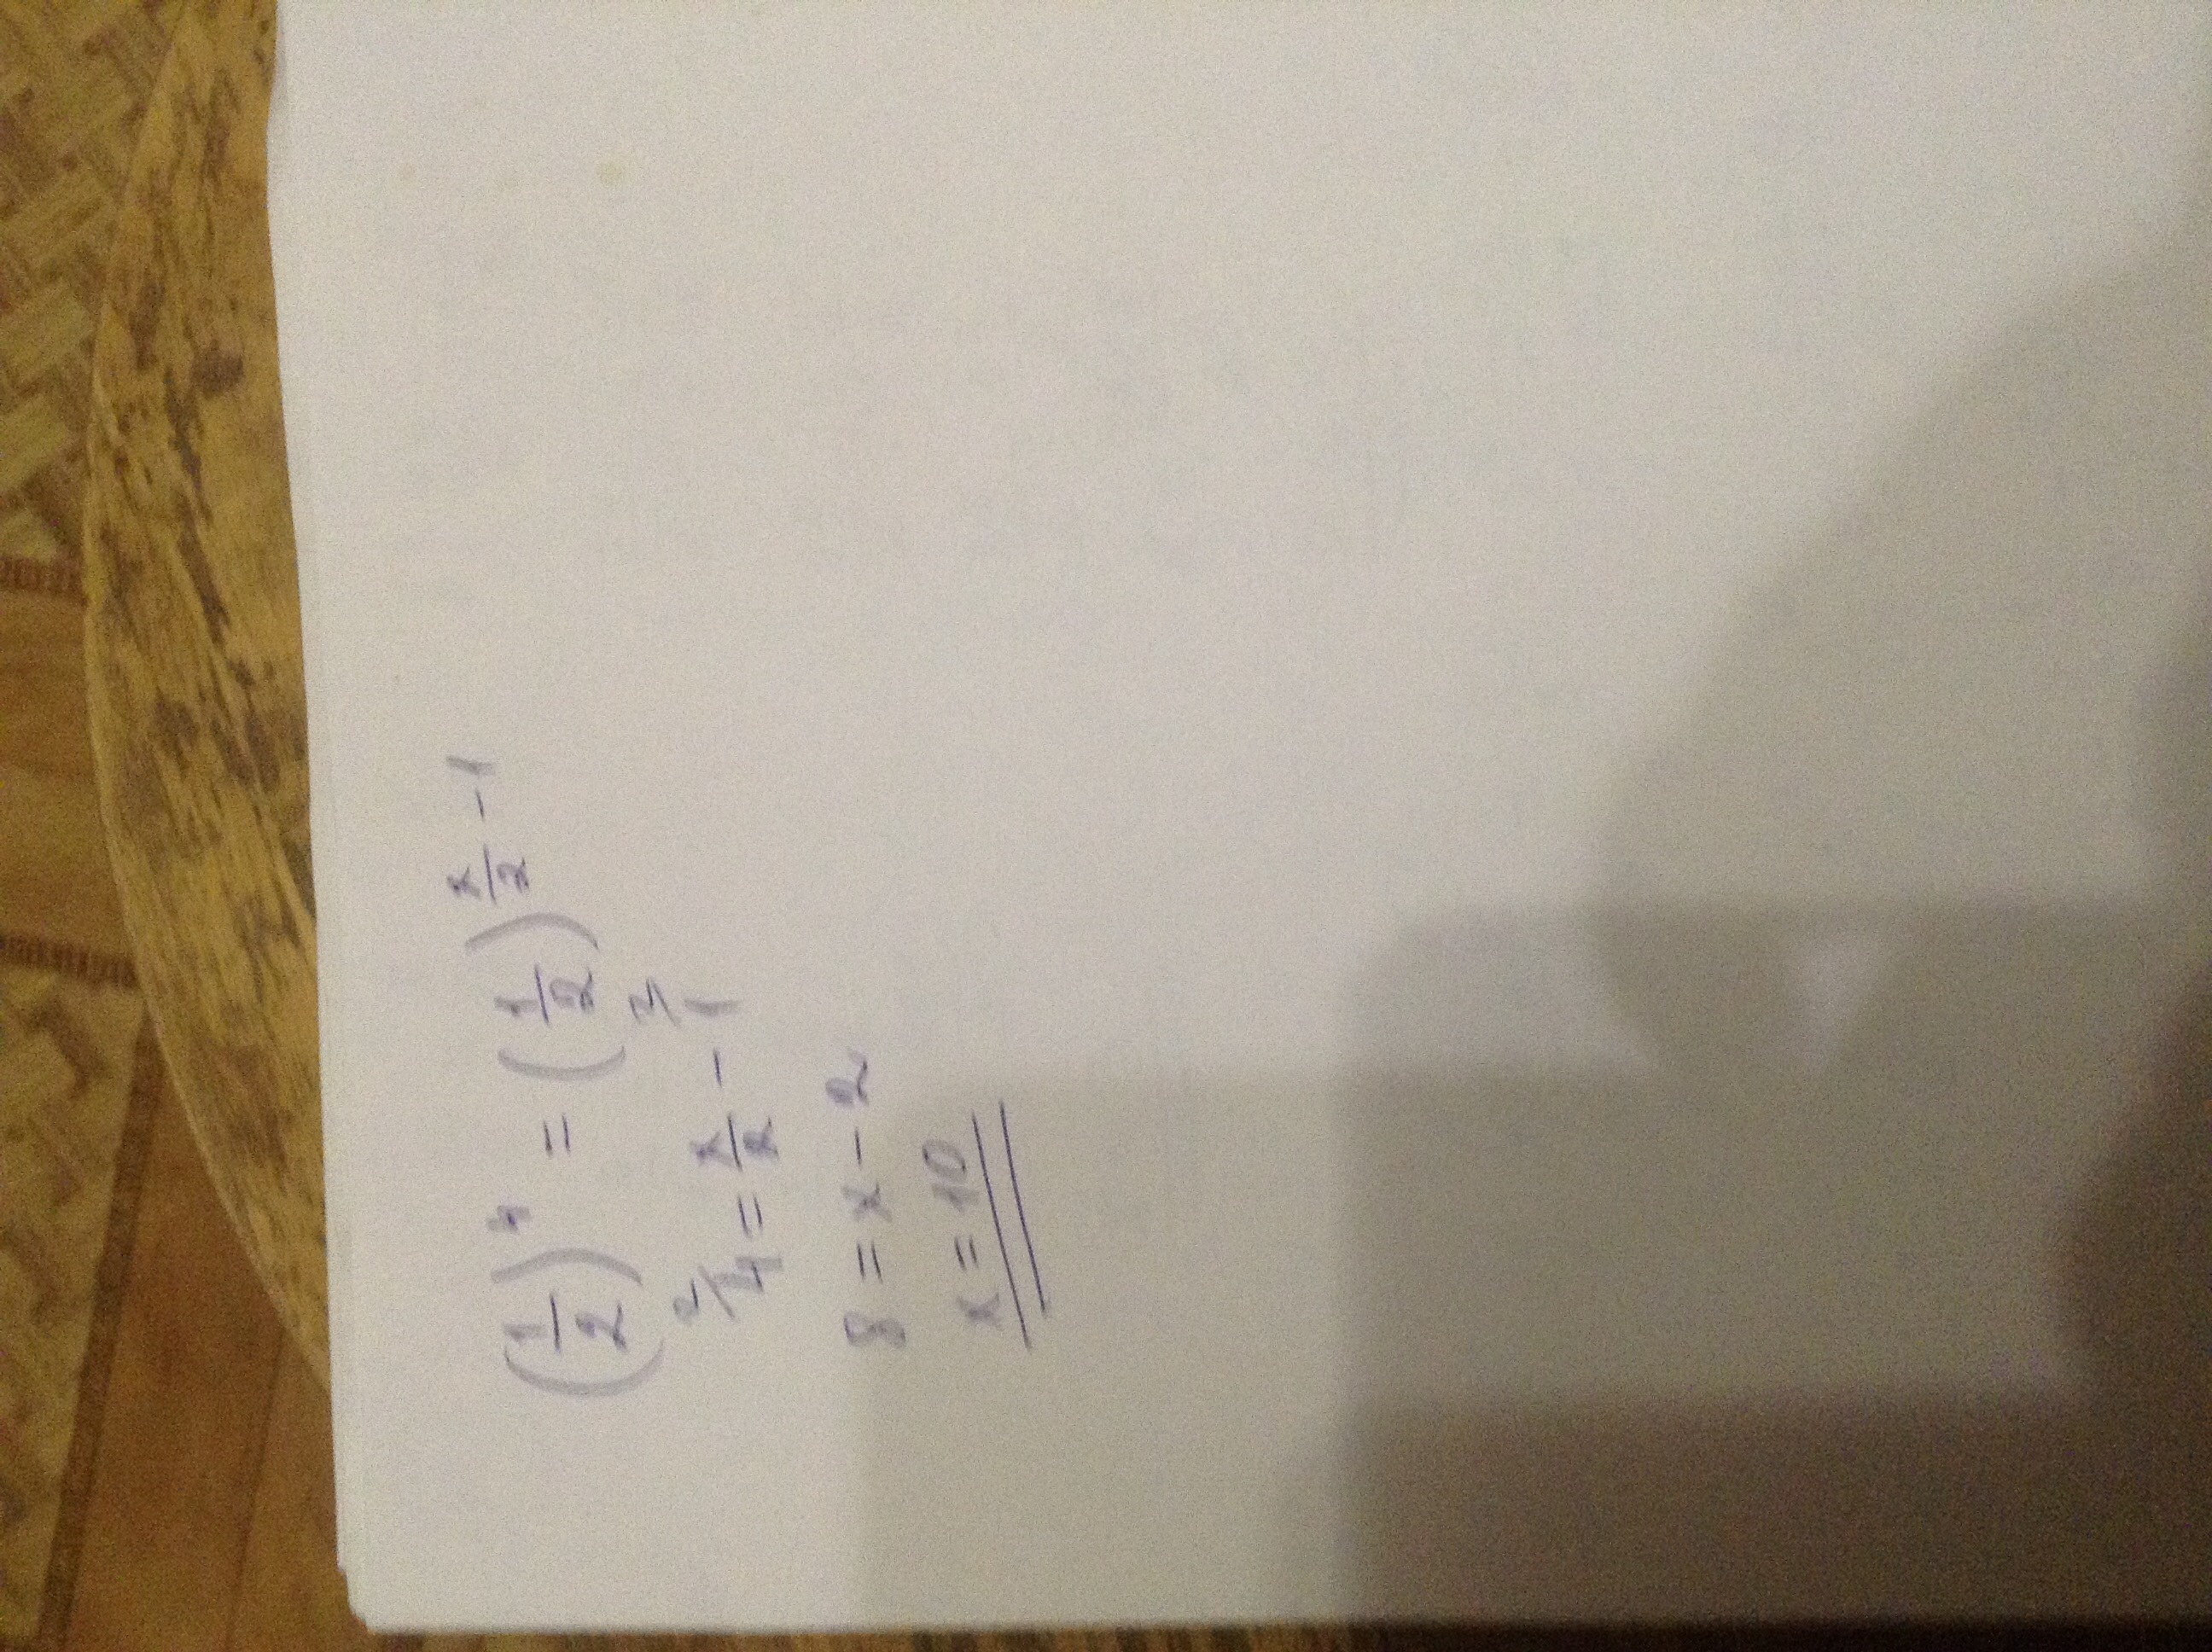 (1/2)^4 = (1/2)^(x/2 - 1)
2/ 4 = x/2 - 2/ 1
8 = x - 2
x = 10